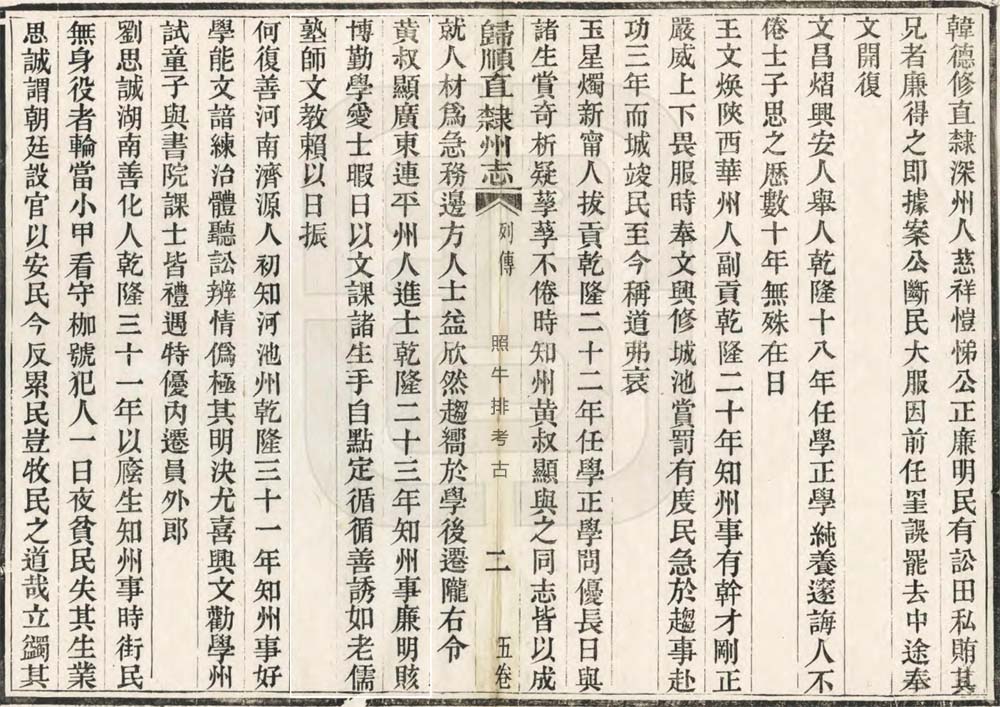 韓德修直隸深州人慈祥愷悌公正廉明民有訟田私賄其
兄者廉得之即據案公斷民大服因前任罣誤罷去中途奉
文開復
文昌熠興安人舉人乾隆十八年任學正學純養邃誨人不
倦士子思之歷數十年無殊在日
王文煥陝西華州人副貢乾隆二十年知州事有幹才剛正
嚴威上下畏服時奉文興修城池賞罰有度民急於趨事赴
功三年而城竣民至今稱道弗衰
玉星燭新甯人拔貢乾隆二十二年任學正學問優長日與
諸生賞奇析疑孳孳不倦時知州黃叔顯與之同志皆以成
歸順直隸州志
列傳
照牛排考古
二
五卷
就人材為急務邊方人士益欣然趨嚮於學後遷隴右令
黃叔顯廣東連平州人進士乾隆二十三年知州事廉明賅
博勤學愛士暇日以文課諸生手自點定循循善誘如老儒
塾師文教賴以日振
何復善河南濟源人初知河池州乾隆三十一年知州事好
學能文諳練治體聽訟辨情偽極其明決尤喜興文勸學州
試童子與書院課士皆禮遇特優內遷員外郎
劉思誠湖南善化人乾隆三十一年以廕生知州事時街民
無身役者輪當小甲看守枷號犯人一日夜貧民失其生業
思誠謂朝廷設官以安民今反累民豈牧民之道哉立蠲其